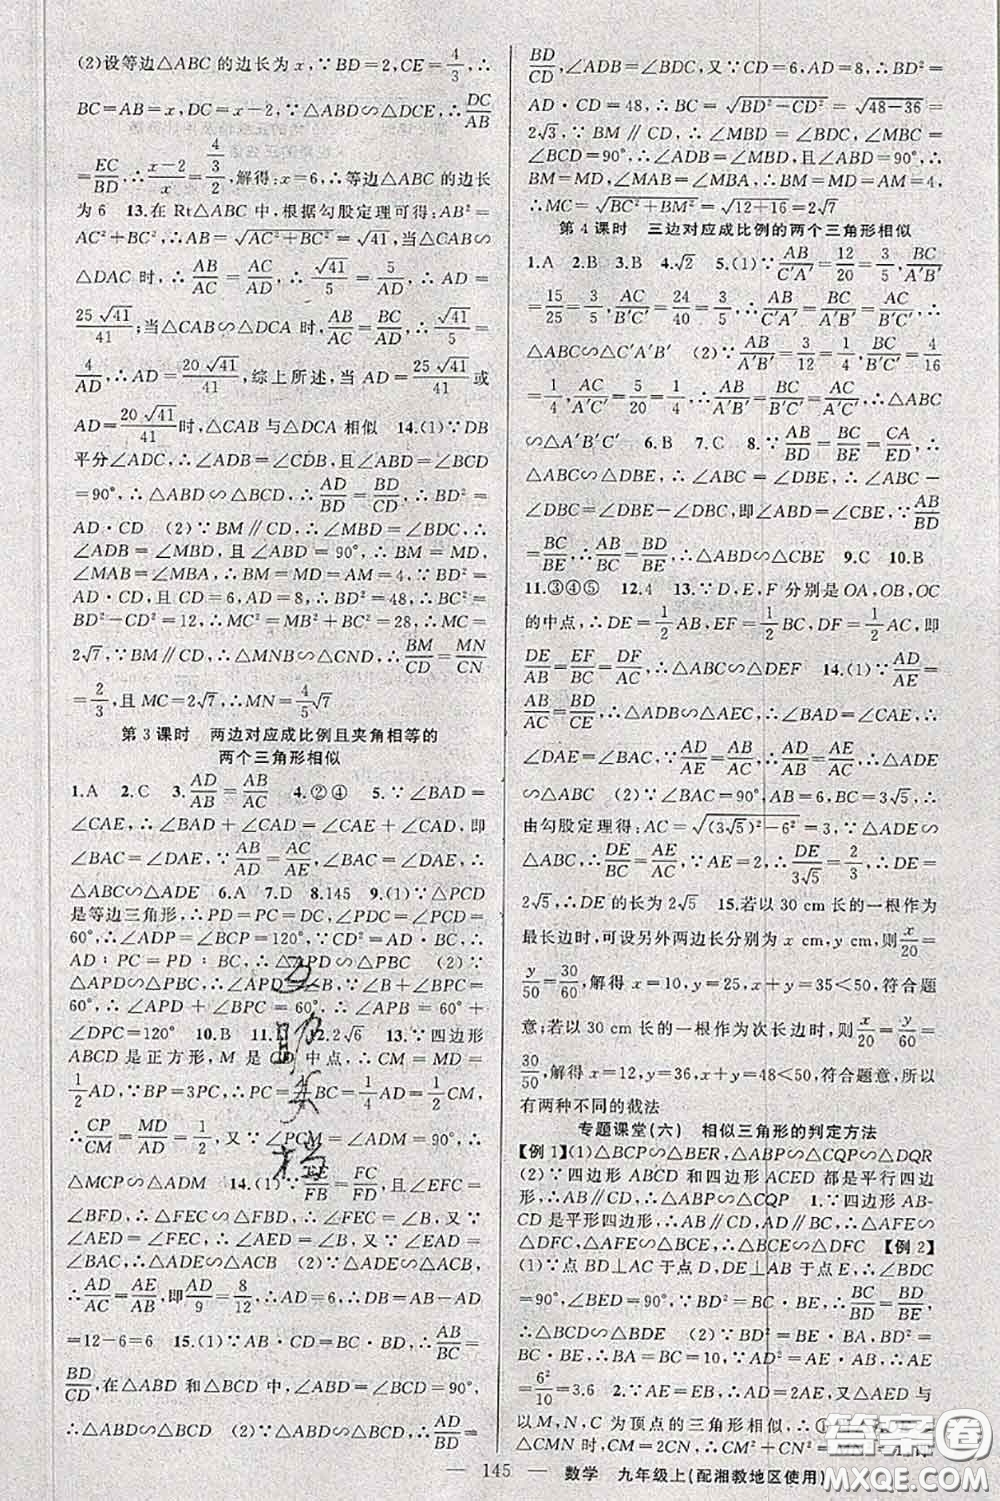 (2)设等边△ABC 的边长为 x,∵BD=2,CE=4/3,∴
BC=AB=x,DC=x−2,∵△ABD∽△DCE,∴DC/AB
=EC/BD,∴(x−2)/x=(4/3)/2,解得:x=6,∴等边△ABC 的边长
为 6 13.在 Rt△ABC 中,根据勾股定理可得:AB²=
AC²+BC²,∴AB=√(AC²+BC²)=√41,当△CAB∽
△DAC 时,∴AB/AC=AC/AD,∴√41/5=5/AD,∴AD=
25√41/41;当△CAB∽△DCA 时,∴AB/AC=BC/AD,∴√41/5=
4/AD,∴AD=20√41/41,综上所述,当 AD=25√41/41或
AD=20√41/41时,△CAB 与△DCA 相似 14.(1)∵DB
平分∠ADC,∴∠ADB=∠CDB,且∠ABD=∠BCD
=90°,∴△ABD∽△BCD,∴AD/BD=BD/CD,∴BD²=
AD·CD (2)∵BM∥CD,∴∠MBD=∠BDC,∴
∠ADB=∠MBD,且∠ABD=90°,∴BM=MD,
∠MAB=∠MBA,∴BM=MD=AM=4,∵BD²=
AD·CD,且 CD=6,AD=8,∴BD²=48,∴BC²=
BD²−CD²=12,∴MC²=MB²+BC²=28,∴MC=
2√7,∵BM∥CD,∴△MNB∽△CND,∴BM/CD=MN/CN
=2/3,且 MC=2√7,∴MN=4/5√7
第 3 课时 两边对应成比例且夹角相等的
两个三角形相似
1.A 2.C 3.AD/AB=AB/AC 4.②④ 5.∵∠BAD=
∠CAE,∴∠BAD+∠CAD=∠CAE+∠CAD,即
∠BAC=∠DAE,∵AB/AD=AC/AE,∠BAC=∠DAE,∴
△ABC∽△ADE 6.A 7.D 8.145 9.(1)∵△PCD
是等边三角形,∴PD=PC=DC,∠PDC=∠PCD=
60°,∴∠ADP=∠BCP=120°,∵CD²=AD·BC,∴
AD∶PC=PD∶BC,∴△APD∽△PBC (2)∵
△APD∽△PBC,∴∠APD=∠B,∵∠B+∠BPC=
60°,∴∠APD+∠BPC=60°,∴∠APB=60°+
∠DPC=120° 10.B 12.2√6 13.∵四边形
ABCD 是正方形,M 是 中点,∴CM=MD=
1/2AD,∵BP=3PC,∴PC=1/4BC=1/4AD=1/2CM,
∴CP/CM=MD/AD=1/2,又∵∠PCM=∠ADM=90°,∴
△MCP∽△ADM 14.(1)∵EF/FB=FC/FD,且∠EFC=
∠BFD,∴△FEC∽△FBD,∴∠FEC=∠B,又∵
∠AED=∠FEC,∴∠AED=∠B,又∵∠EAD=
∠BAC,∴△ADE∽△ABC (2)∵△ADE∽△ABC,
∴AD/AC=AE/AB,即AD/9=8/12,∴AD=6,∴DB=AB−AD
=12−6=6 15.(1)∵AB·CD=BC·BD,∴AB/BC=
BD/CD,在△ABD 和△BCD 中,∠ABD=∠BCD=90°,
∴△ABD∽△BCD (2)∵△ABD∽△BCD,∴AD/BD=
BD/CD,∠ADB=∠BDC,又∵CD=6,AD=8,∴BD²=
AD·CD=48,∴BC=√(BD²−CD²)=√(48−36)=
2√3,∵BM∥CD,∴∠MBD=∠BDC,∠MBC=
∠BCD=90°,∴∠ADB=∠MBD,且∠ABD=90°,∴
BM=MD,∠MAB=∠MBA,∴BM=MD=AM=4,
∴MC=√(BC²+BM²)=√(12+16)=2√7
第 4 课时 三边对应成比例的两个三角形相似
1.A 2.B 3.B 4.√2 5.(1)∵AB/C′A′=12/20=3/5,BC/A′B′
=15/25=3/5,AC/B′C′=24/40=3/5,∴AB/C′A′=BC/A′B′=AC/B′C′,∴
△ABC∽△C′A′B′ (2)∵AB/A′B′=3/12=1/4,BC/B′C′=4/16
=1/4,AC/A′C′=5/20=1/4,∴AB/A′B′=BC/B′C′=AC/A′C′,∴△ABC
∽△A′B′C′ 6.B 7.C 8.∵AB/BD=BC/BE=CA/ED,∴
△ABC∽△DBE,∴∠ABC=∠DBE,∴∠ABC−
∠DBC=∠DBE−∠DBC,即∠ABD=∠CBE,∵AB/BD=
BC/BE,∴AB/BC=BD/BE,∴△ABD∽△CBE 9.C 10.B
11.③④⑤ 12.4 13.∵D,E,F 分别是 OA,OB,OC
的中点,∴DE=1/2AB,EF=1/2BC,DF=1/2AC,即
DE/AB=EF/BC=DF/AC,∴△ABC∽△DEF 14.(1)∵AD/AB=
AE/AC=BD/CE,∴△ABD∽△ACE,∴∠BAD=∠CAE,
∴∠DAE=∠BAC,∵AD/AB=AE/AC,∴AD/AE=AB/AC,∴△ADE
∽△ABC (2)∵∠BAC=90°,AB=6,BC=3√5,∴
由勾股定理得:AC=√((3√5)²−6²)=3,∵△ADE∽
△ABC,∴DE/BC=AE/AC,∵AE=2,∴DE/3√5=2/3,∴DE=
2√5,∴DE 的长为 2√5 15.若以 30 cm 长的一根作为
最长边时,可设另外两边长分别为 x cm,y cm,则x/20=
y/50=30/60,解得:x=10,y=25,x+y=35<50,符合题
意;若以 30 cm 长的一根作为次长边时,则x/20=y/60=
30/50,解得 x=12,y=36,x+y=48<50,符合题意,所以
有两种不同的截法
专题课堂(六) 相似三角形的判定方法
【例 1】(1)△BCP∽△BER,△ABP∽△CQP∽△DQR
(2)∵四边形 ABCD 和四边形 ACED 都是平行四边
形,∴AB∥CD,∴△ABP∽△CQP 1.∵四边形 AB-
CD 是平行四边形,∴AB∥CD,AD∥BC,∴△AFE∽
△DFC,△AFE∽△BCE,∴△BCE∽△DFC 【例 2】
(1)∵点 BD⊥AC 于点 D,DE⊥AB 于点 E,∴∠BDC
=90°,∠BED=90°,∵BD²=BC·BE,∴BC/BD=BD/BE,
∴△DBC∽△BDE (2)∵BD²=BE·BA,BD²=
BC·BE,∴BA=BC=10,∵BD=6,∴BE=BD²/BA=
6²/10=3.6 2.∵AE=EB,∴AD=2AE,又∵△AED 与
以 M,N,C 为顶点的三角形相似,∴①
△CMN 时,CM=2CN,∴ 时
145 数学 九年级上(配湘教地区使用)
答案圈
MXQE.COM